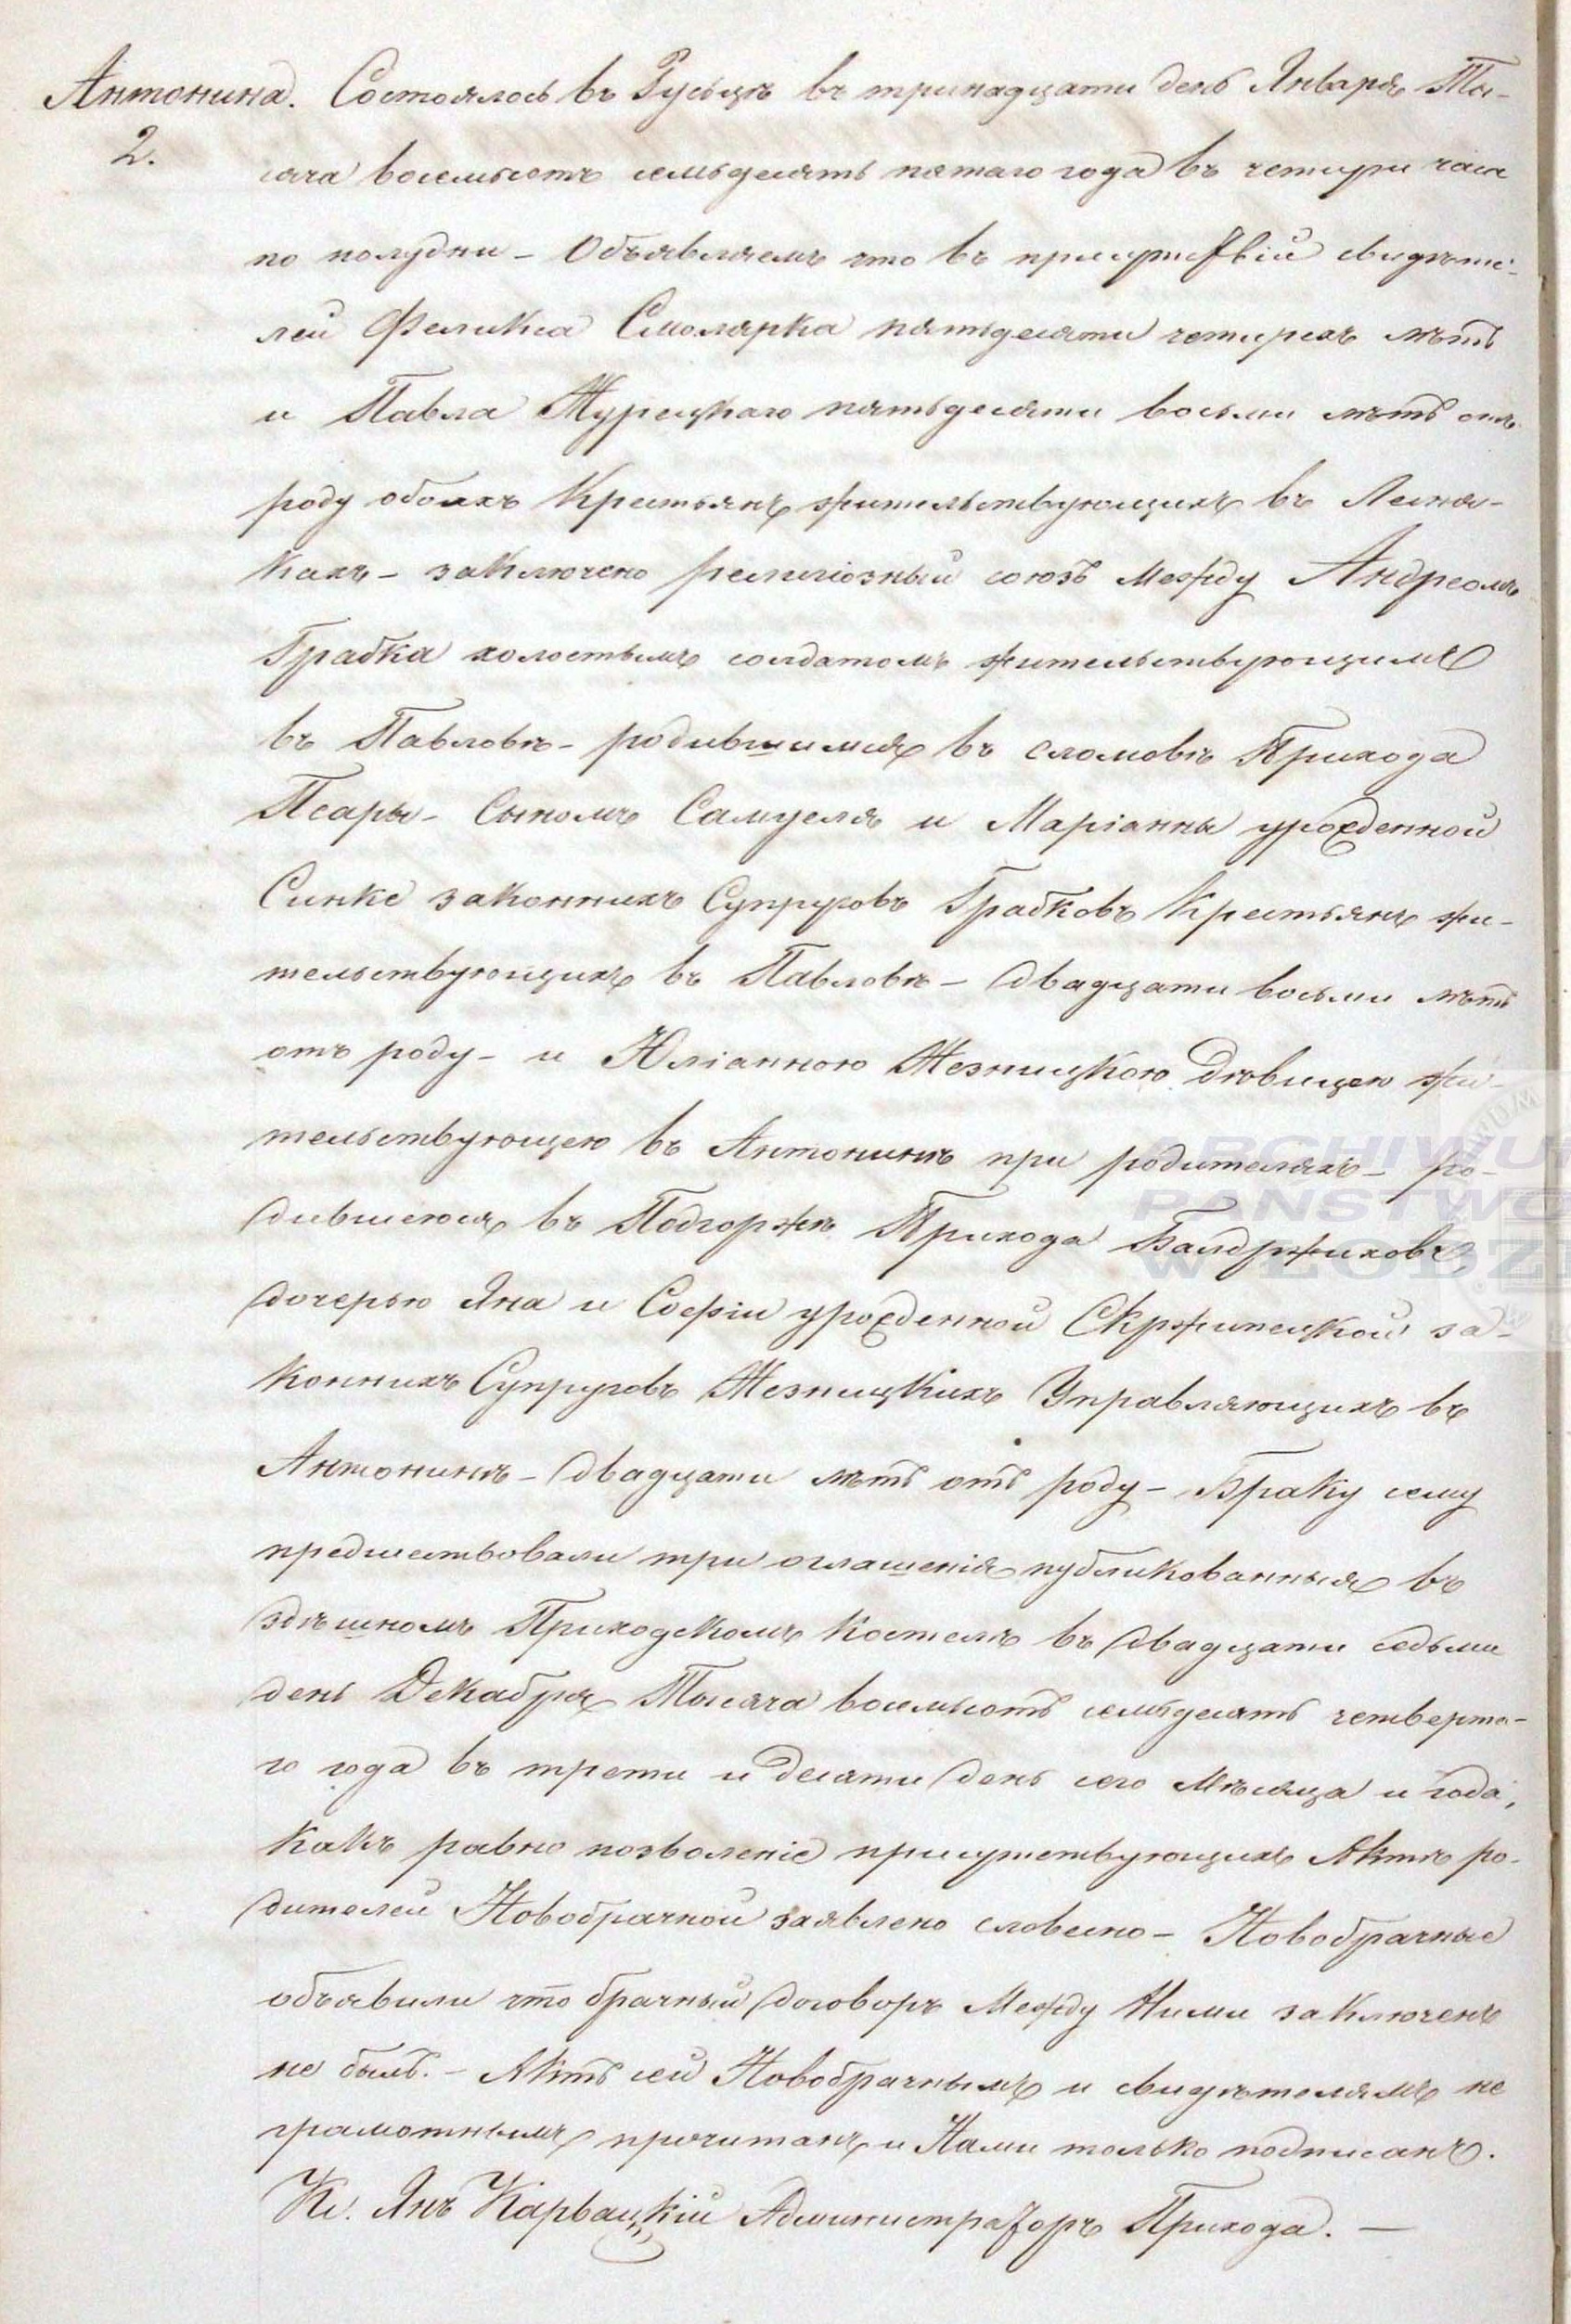 Антонина. Состоялось въ Русьцѣ въ тринадцати день Января Ты-
2.
сяча восемьсотъ семьдесятъ пятаго года въ четыри часа
по полудни – Объявляемъ что въ присутствіи свидѣте-
лей Феликса Смолярка пятьдесяти четырехъ лѣтъ
и Павла Журецкаго пятьдесяти восьми лѣтъ отъ
роду обоихъ Крестьянъ жительствующихъ въ Лесня-
кахъ – заключено религіозный союзъ между Андреомъ
Грабка холостымъ солдатомъ жительствующимъ
въ Павловѣ – родившимся въ Сломовѣ Прихода
Псары – Сыномъ Самуеля и Маріанны урожденной
Синке законныхъ Супруговъ Грабковъ Крестьянъ жи-
тельствующихъ въ Павловѣ – двадцати восьми лѣтъ
отъ роду – и Юліанною Незницкою дѣвицею жи-
тельствующею въ Антонинѣ при родителяхъ – ро-
дившеюся въ Подгоржѣ Прихода Балдржиховъ
дочерью Яна и Софіи урожденной Скржипецкой за-
конныхъ Супруговъ Незницкихъ Управляющихъ въ
Антонинѣ – двадцати лѣтъ отъ роду – Браку сему
предшествовали три оглашенія публикованныя въ
здѣшномъ Приходскомъ Костелѣ въ двадцати седьми
день Декабря Тысяча восемьсотъ семьдесятъ четверта-
го года въ трети и десяти день сего Мѣсяца и года,
какъ равно позволеніе присутствующихъ Актѣ ро-
дителей Новобрачной заявлено словесно – Новобрачные
объявили что брачный договоръ Между Ними заключенъ
не былъ. – Актъ сей Новобрачнымъ и свидѣтелямъ не
грамотнымъ прочитанъ и Нами только подписанъ.
Кс. Янъ Карвацкій Администраторъ Прихода. –
ARCHIWUM
PAŃSTWO
W ŁODZI